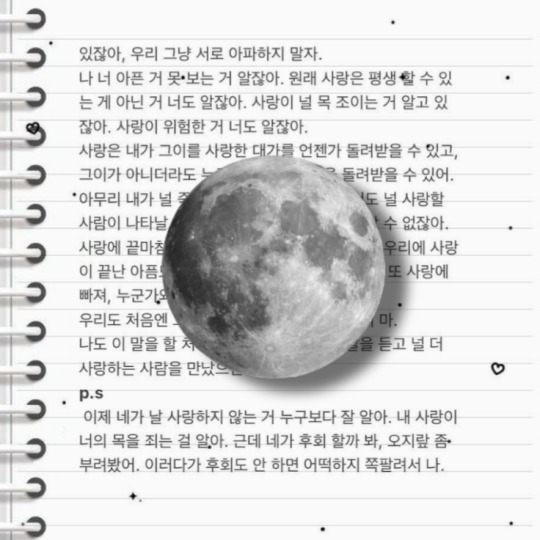 있잖아, 우리 그냥 서로 아파하지 말자.
나 너 아픈 거 못 보는 거 알잖아. 원래 사랑은 평생 할 수 있
는 게 아닌 거 너도 알잖아. 사랑이 널 목 조이는 거 알고 있
잖아. 사랑이 위험한 거 너도 알잖아.
사랑은 내가 그이를 사랑한 대가를 언젠가 돌려받을 수 있고,
그이가 아니더라도 돌려받을 수 있어.
아무리 내가 널 널 사랑할
사람이 나타날 수 없잖아.
사랑에 우리에 사랑
이 끝난 또 사랑에
빠져, 마.
우리도 처음엔
나도 이 말을 할 듣고 널 더
사랑하는 사람을
p.s
이제 네가 날 사랑하지 않는 거 누구보다 잘 알아. 내 사랑이
너의 목을 죄는 걸 알아. 근데 네가 후회 할까 봐, 오지랖 좀
부려봤어. 이러다가 후회도 안 하면 어떡하지 쪽팔려서 나.